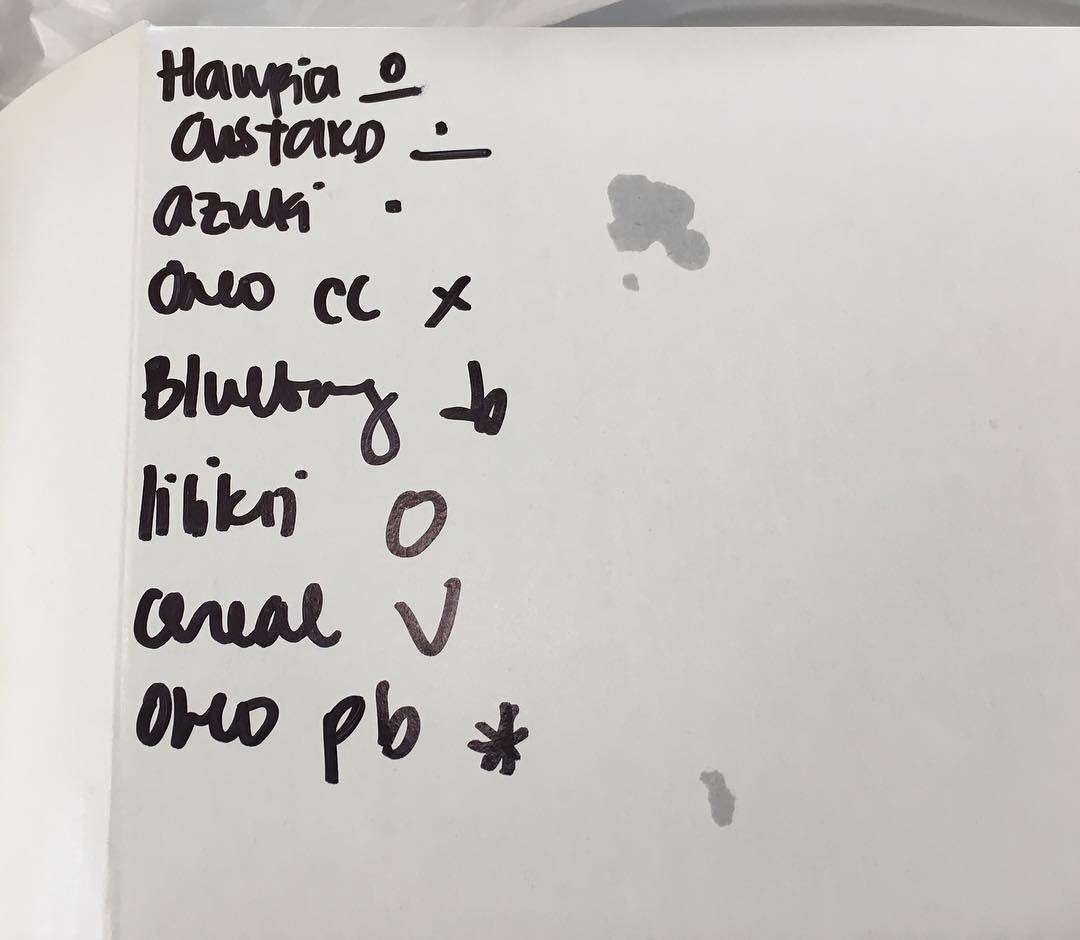 Haupia
custard
azuki
oreo cc x
Blueberry b
lilikoi O
cereal V
oreo pb *